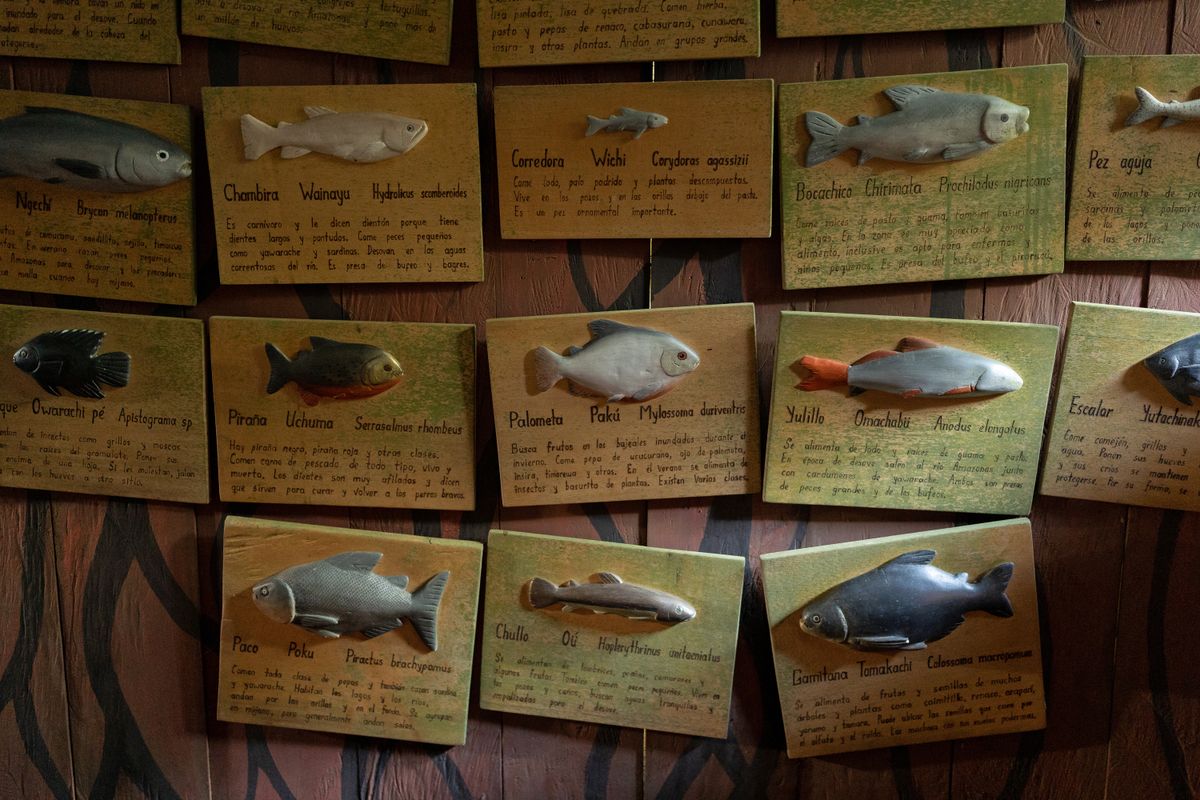 inundado para el desove. Cuando
alrededor de la cabeza del
a desovar al río Amazonas, y pone más de
un millón de huevos.
lisa pintada, lisa de quebrada. Comen hierba,
pasto y pepas de renaco, cabasuraná, cunawara,
insira y otras plantas. Andan en grupos grandes.
Ngechi Brycon melanopterus
Chambira Wainayu Hydrolicus scomberoides
Es carnívoro y le dicen dientón porque tiene
dientes largos y puntudos. Come peces pequeños
como yawarache y sardinas. Desovan en las aguas
correntosas del río. Es presa de bufeo y bagres.
Corredora Wichi Corydoras agassizii
Come lodo, palo podrido y plantas descompuestas.
Vive en los pozos, y en las orillas debajo del pasto.
Es un pez ornamental importante.
Bocachico Chirimata Prochilodus nigricans
Come raíces de pasto y guama, también basuritas
y algas. En la zona es muy apreciado como
alimento, inclusive es apto para enfermos y
niños pequeños. Es presa del bufeo y el pirarucú.
Pez aguja
Se alimenta de
sardinas y
de los lagos y
de las orillas.
Owarachi pé Apistograma sp
de insectos como grillos y moscos
las raíces del gramalote. Ponen sus
encima de una hoja. Si les molestan, jalan
con los huevos a otro sitio.
Piraña Uchuma Serrasalmus rhombeus
Hay piraña negra, piraña roja y otras clases.
Comen carne de pescado de todo tipo, vivo y
muerto. Los dientes son muy afilados y dicen
que sirven para curar y volver a los perros bravos.
Palometa Pakú Mylossoma duriventris
Busca frutos en los bajeales inundados durante el
invierno. Come pepa de urucurana, ojo de palometa,
insira, timarewa y otros. En el verano se alimenta de
insectos y basurito de plantas. Existen varias clases.
Yulillo Omachabú Anodus elongatus
Se alimenta de lodo y raíces de guama y pasto.
En época de desove salen al río Amazonas junto
con cardúmenes de yawarache. Ambos son presas
de peces grandes y de los bufeos.
Escalar
Come comején, grillos y
agua. Ponen sus huevos
y sus crías se mantienen
protegerse. Por su forma, se
Paco Poku Piractus brachypomus
Comen toda clase de pepas y también cazan sardina
y yawarache. Habitan los lagos y los ríos,
andan por las orillas y en el fondo. Se agrupan
en mijano, pero generalmente andan solos.
Chullo Oú Hoplerythrinus unitaeniatus
Se alimentan de lombrices, grillos, camarones y
algunos frutos. También comen peces pequeños. Vive en
los pozos y caños, buscan aguas tranquilas y
empalizadas para el desove.
Gamitana Tamakachi Colossoma macropomum
Se alimenta de frutas y semillas de muchos
árboles y plantas como
yarumo y tamara. Puede ubicar las semillas que caen por
el olfato y el ruido. Las machuca con sus muelas poderosas.